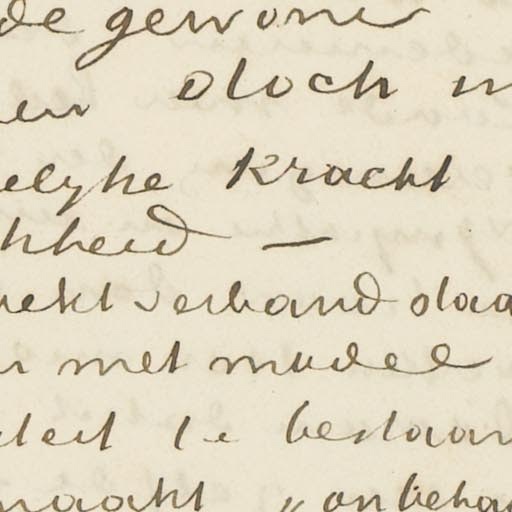 de gewone
en doch m
elyke kracht
kheid —
rekt verband daa
met mudee
teit te bestaan
maakt „onbeha